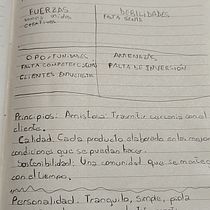 FUERZAS
muy unidos
creativos
DEBILIDADES
FALTA
OPORTUNIDADES
FALTA COMPETENCIA
CLIENTES
AMENAZAS
FALTA DE INVERSIÓN
Principios. Amistosa. Trasmitir cercania con el
cliente.
Calidad. Cada producto elaborado en las mejor
condiciones que se puedan hacer.
Sostenibilidad. Una comunidad que se mantee
con el tiempo.
Personalidad. Tranquilo, simple,